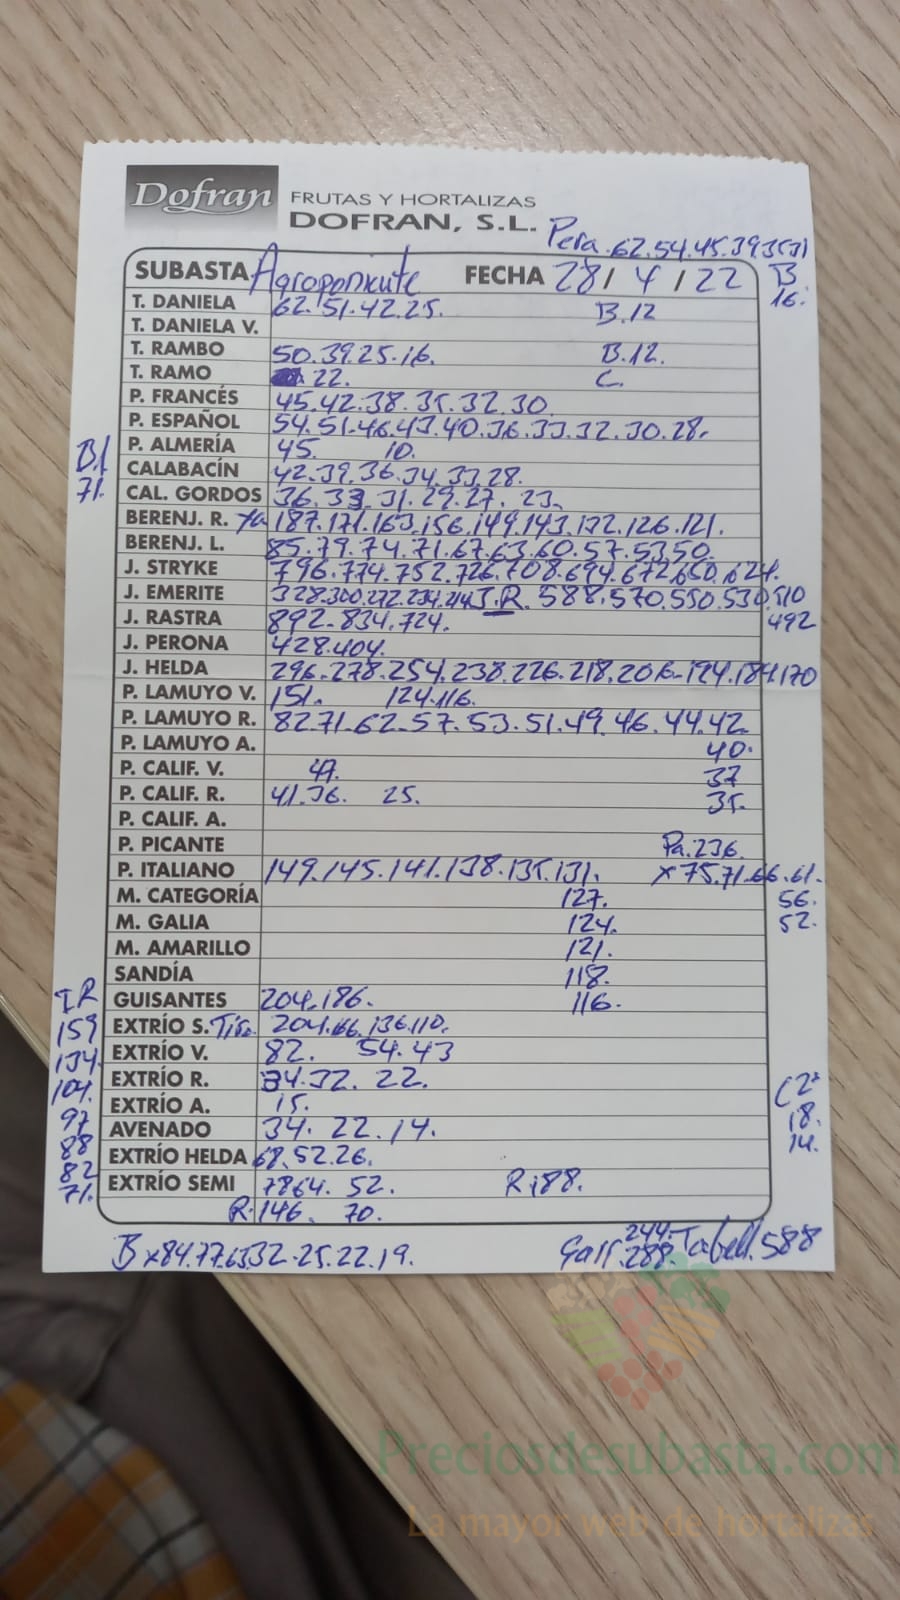 Dofran FRUTAS Y HORTALIZAS
DOFRAN, S.L.
Pera. 62.54.45.39.35(31)
SUBASTA Agroponiente FECHA 28/ 4 / 22 B
16.
T. DANIELA 62.51.42.25. B.12
T. DANIELA V.
T. RAMBO 50.39.25.16. B.12.
T. RAMO 22. C.
P. FRANCÉS 45.42.38.35.32.30
P. ESPAÑOL 54.51.46.43.40.36.33.32.30.28.
P. ALMERÍA 45. 10.
B1
CALABACÍN 42.39.36.34.33.28.
71.
CAL. GORDOS 36.33.31.29.27.23.
BERENJ. R. 187.171.163.156.149.143.132.126.121.
BERENJ. L. 85.79.74.71.67.63.60.57.53.50.
J. STRYKE 796.774.752.726.708.694.672.650.624.
J. EMERITE 328.300.272.234.214 J.R. 588.570.550.530.510
492
J. RASTRA 892.834.724.
J. PERONA 428.404.
J. HELDA 296.278.254.238.226.218.206.194.184.170
P. LAMUYO V. 151. 124.116.
P. LAMUYO R. 82.71.62.57.53.51.49.46.44.42.
P. LAMUYO A. 40.
P. CALIF. V. 47. 37
P. CALIF. R. 41.36. 25. 35.
P. CALIF. A.
P. PICANTE Pa.236.
P. ITALIANO 149.145.141.138.135.131. x75.71.66.61.
M. CATEGORÍA 127. 56.
M. GALIA 124. 52.
M. AMARILLO 121.
SANDÍA 118.
IR
GUISANTES 204.186. 116.
159
EXTRÍO S. Tira. 204.166.136.110.
134.
EXTRÍO V. 82. 54.43
104.
EXTRÍO R. 34.32. 22. C2ª
97
EXTRÍO A. 15. 18.
88
AVENADO 34. 22.14. 14.
82
EXTRÍO HELDA 68.52.26.
71.
EXTRÍO SEMI 78.64. 52. R:188.
R:146. 70.
B x84.77.65.32.25.22.19. Garr. 244. 288. Tabell. 588
Preciosdesubasta.com
La mayor web de hortalizas